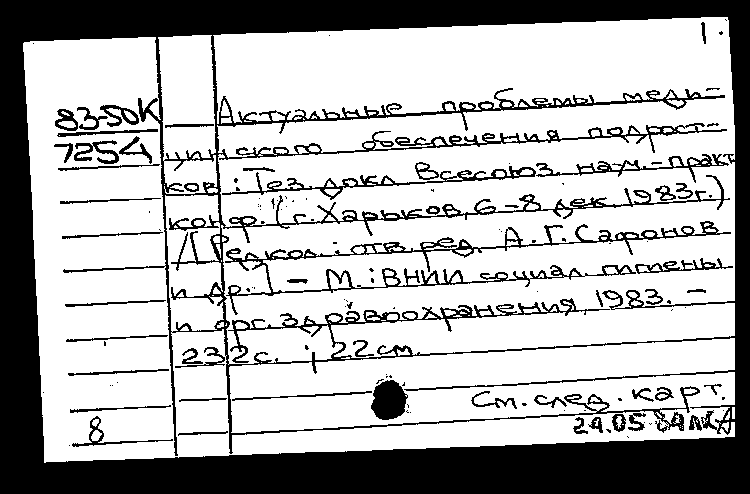 1.
83-50К
7254
Актуальные проблемы меди-
цинского обеспечения подрост-
ков : Тез. докл Всесоюз. науч.-практ
конф. (г. Харьков, 6-8 дек 1983г.)
/[Редкол.: отв. ред. А.Г. Сафонов
и др.] - М. : ВНИИ социал. гигиены
и орг. здравоохранения, 1983. -
232с. ; 22см.
См. след. карт.
8